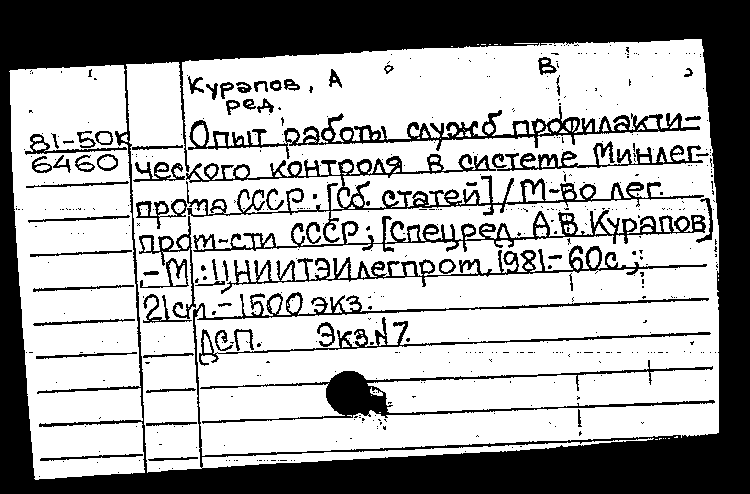 Курапов, А В
ред.
81-50к
6460
Опыт работы служб профилакти=
ческого контроля в системе Минлег-
прома СССР: [Сб. статей] / М-во лег.
пром-сти СССР; [Спецред. А.В.Курапов]
.-М.: ЦНИИТЭИлегпром, 1981.-60с.;
21см.-1500 экз.
ДСП. Экз.N7.